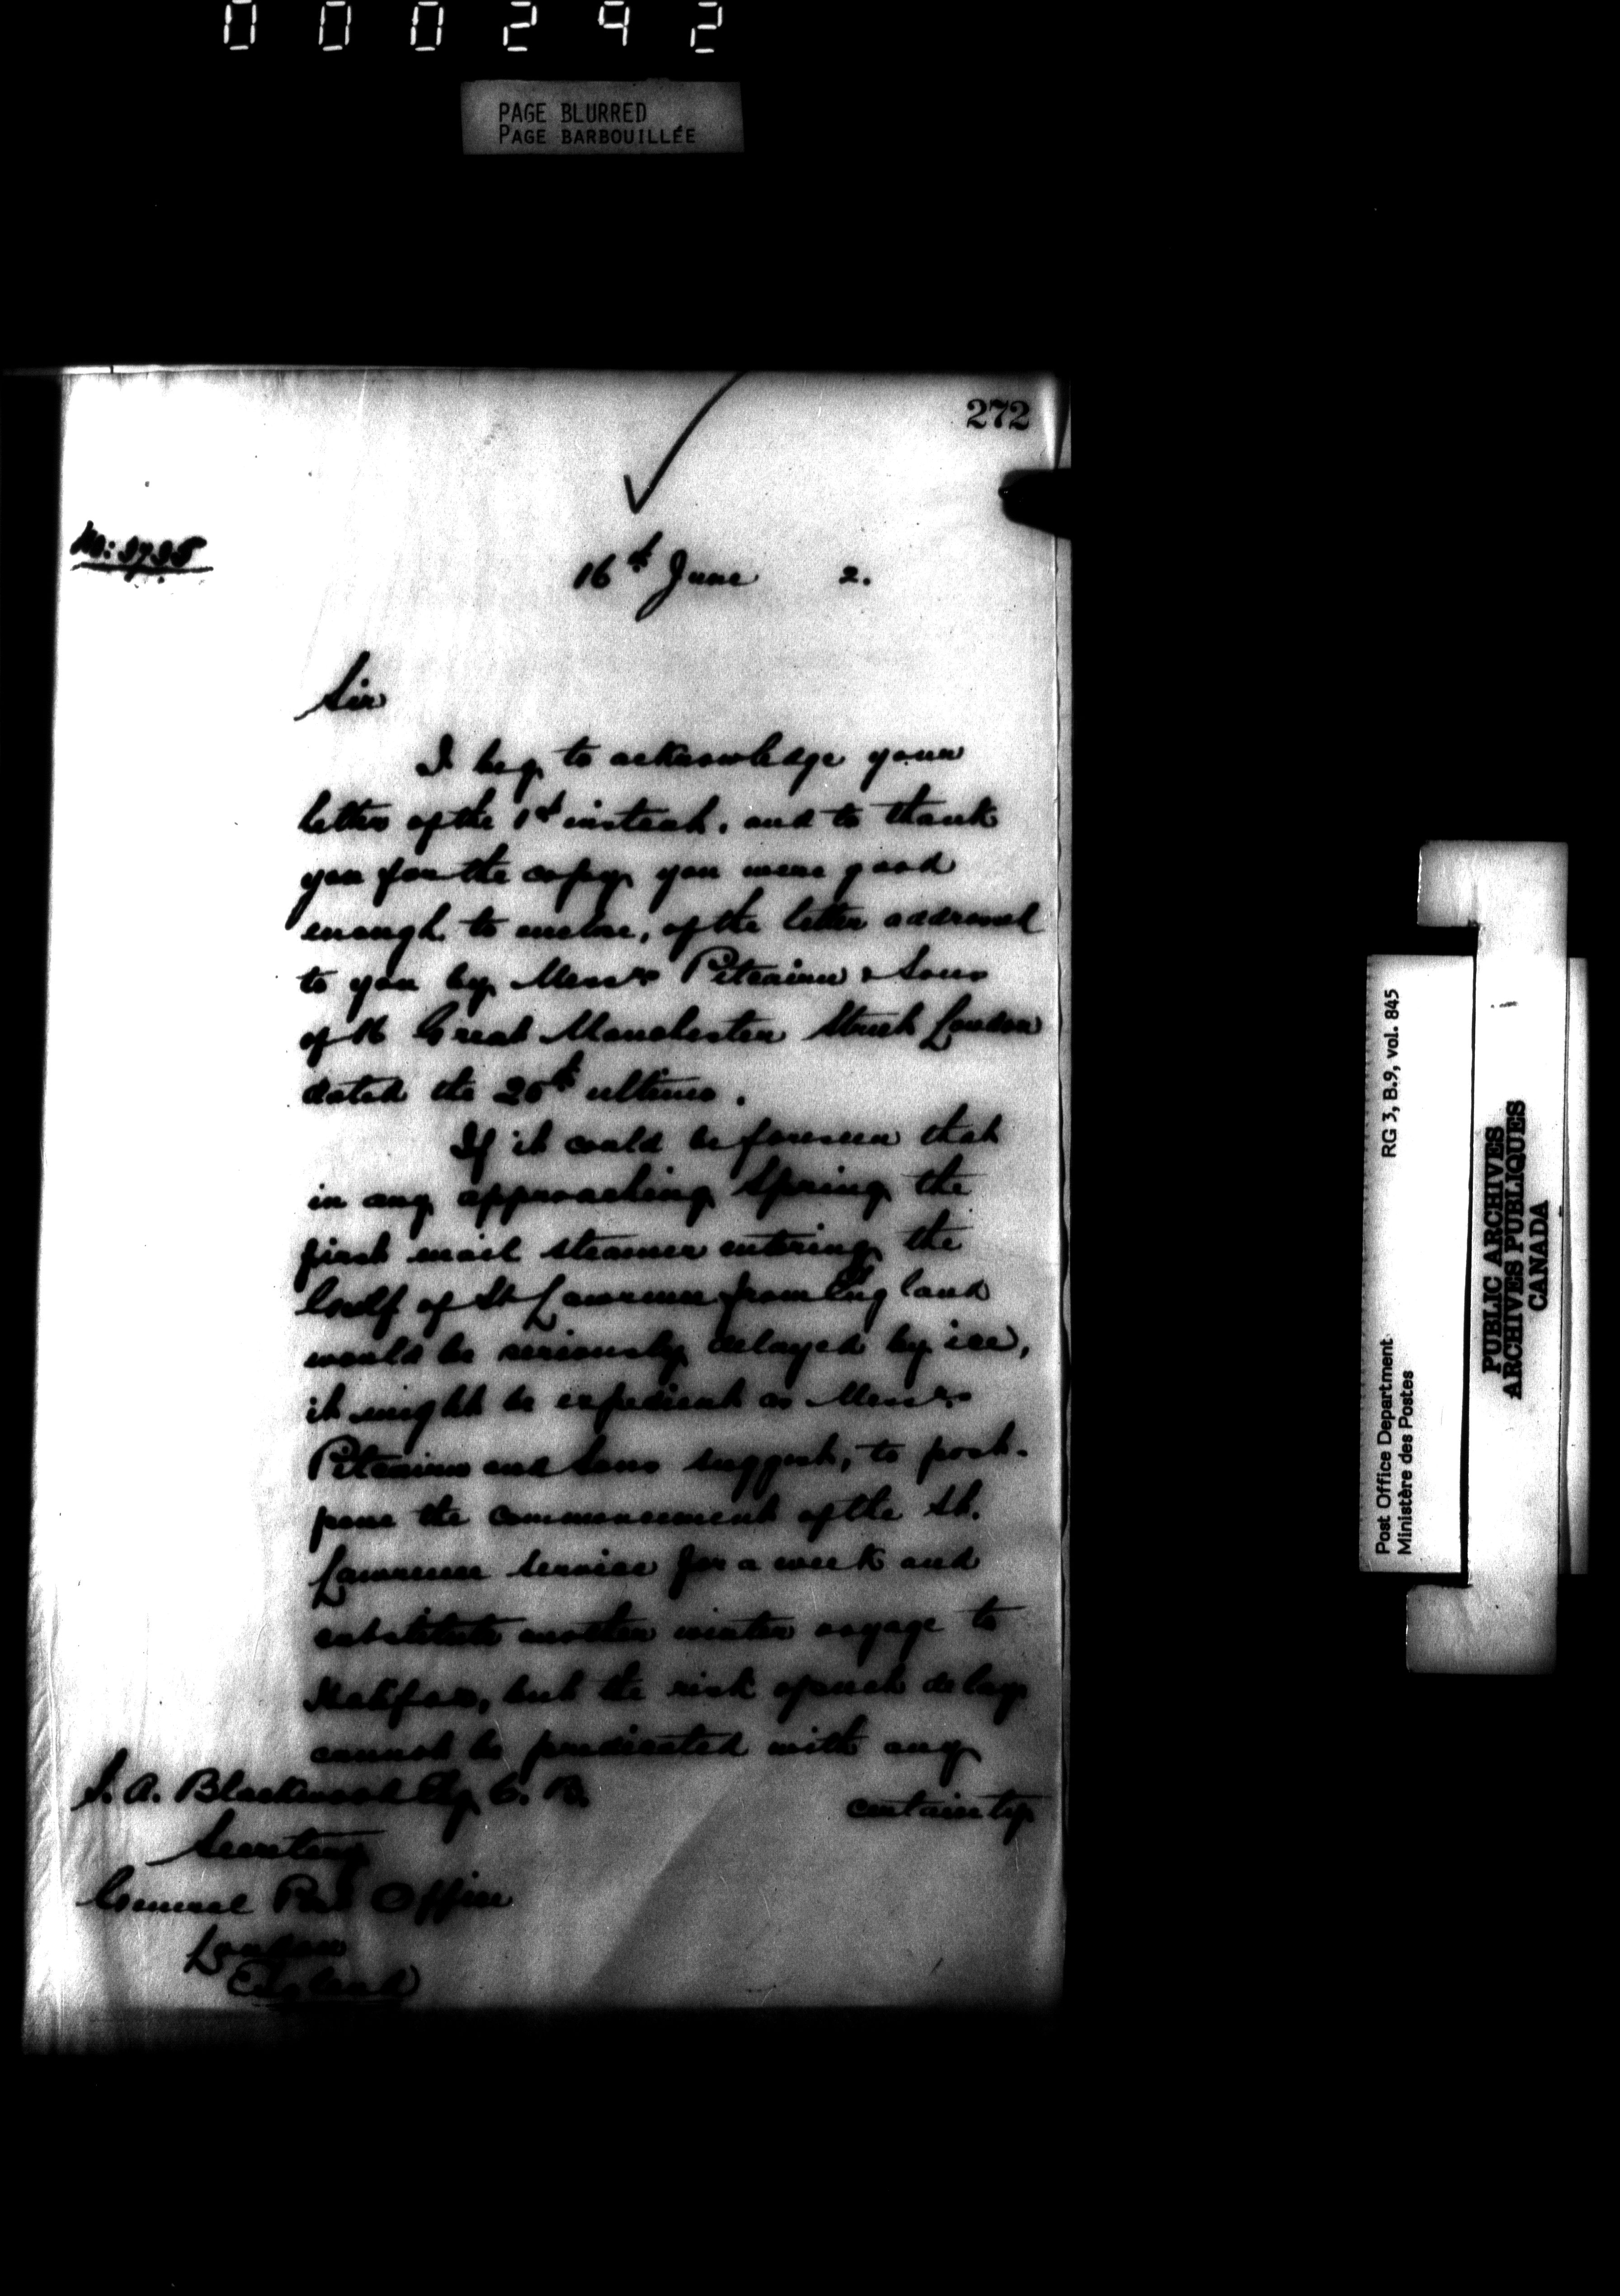 000292
PAGE BLURRED
PAGE BARBOUILLÉE
272
16th June 2.
Sir
I beg to acknowledge your
letter of the 1st instant, and to thank
you for the copy you were good
enough to enclose, of the letter addressed
to you by Messrs Pitcairn & Sons
of Great Manchester Street London
dated the 20th ultimo.
If it could be foreseen that
in any approaching Spring the
first mail steamer entering the
Gulf of St Lawrence from England
would be seriously delayed by ice,
it might be expedient as Messrs
Pitcairn and Sons suggest, to post-
pone the commencement of the St.
Lawrence Service for a week and
substitute another winter voyage to
Halifax, but the risk of such delay
cannot be predicated with any
certainty
S. A. Blackwood Esq C. B.
Secretary
General Post Office
London
England
Post Office Department RG 3, B.9, vol. 845
Ministère des Postes
PUBLIC ARCHIVES
ARCHIVES PUBLIQUES
CANADA